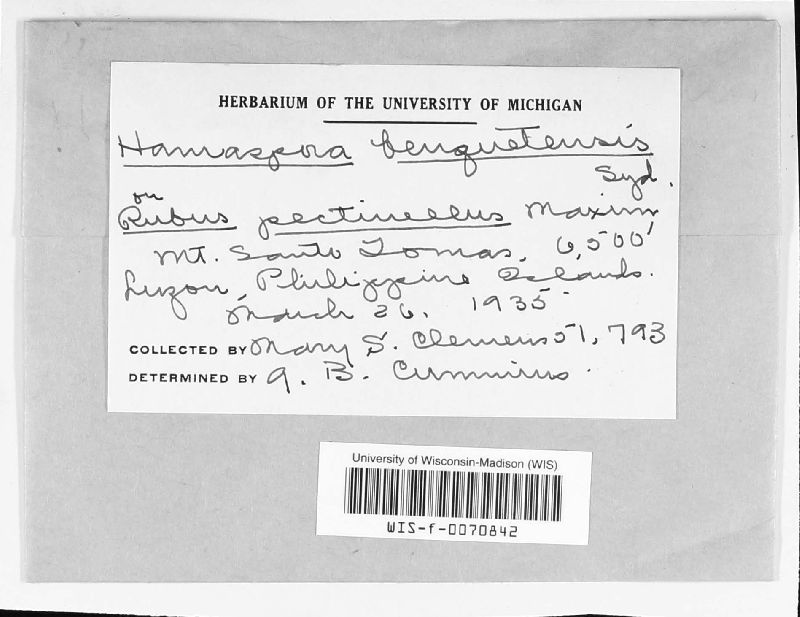 HERBARIUM OF THE UNIVERSITY OF MICHIGAN
Hamaspora benguetensis
Syd.
on
Rubus pectinellus Maxim
Mt. Santo Tomas, 6,500'
Luzon, Philippine Islands.
March 26, 1935
COLLECTED BY Mary S. Clemens 51,793
DETERMINED BY G. B. Cummins.
University of Wisconsin-Madison (WIS)
WIS-f-0070842